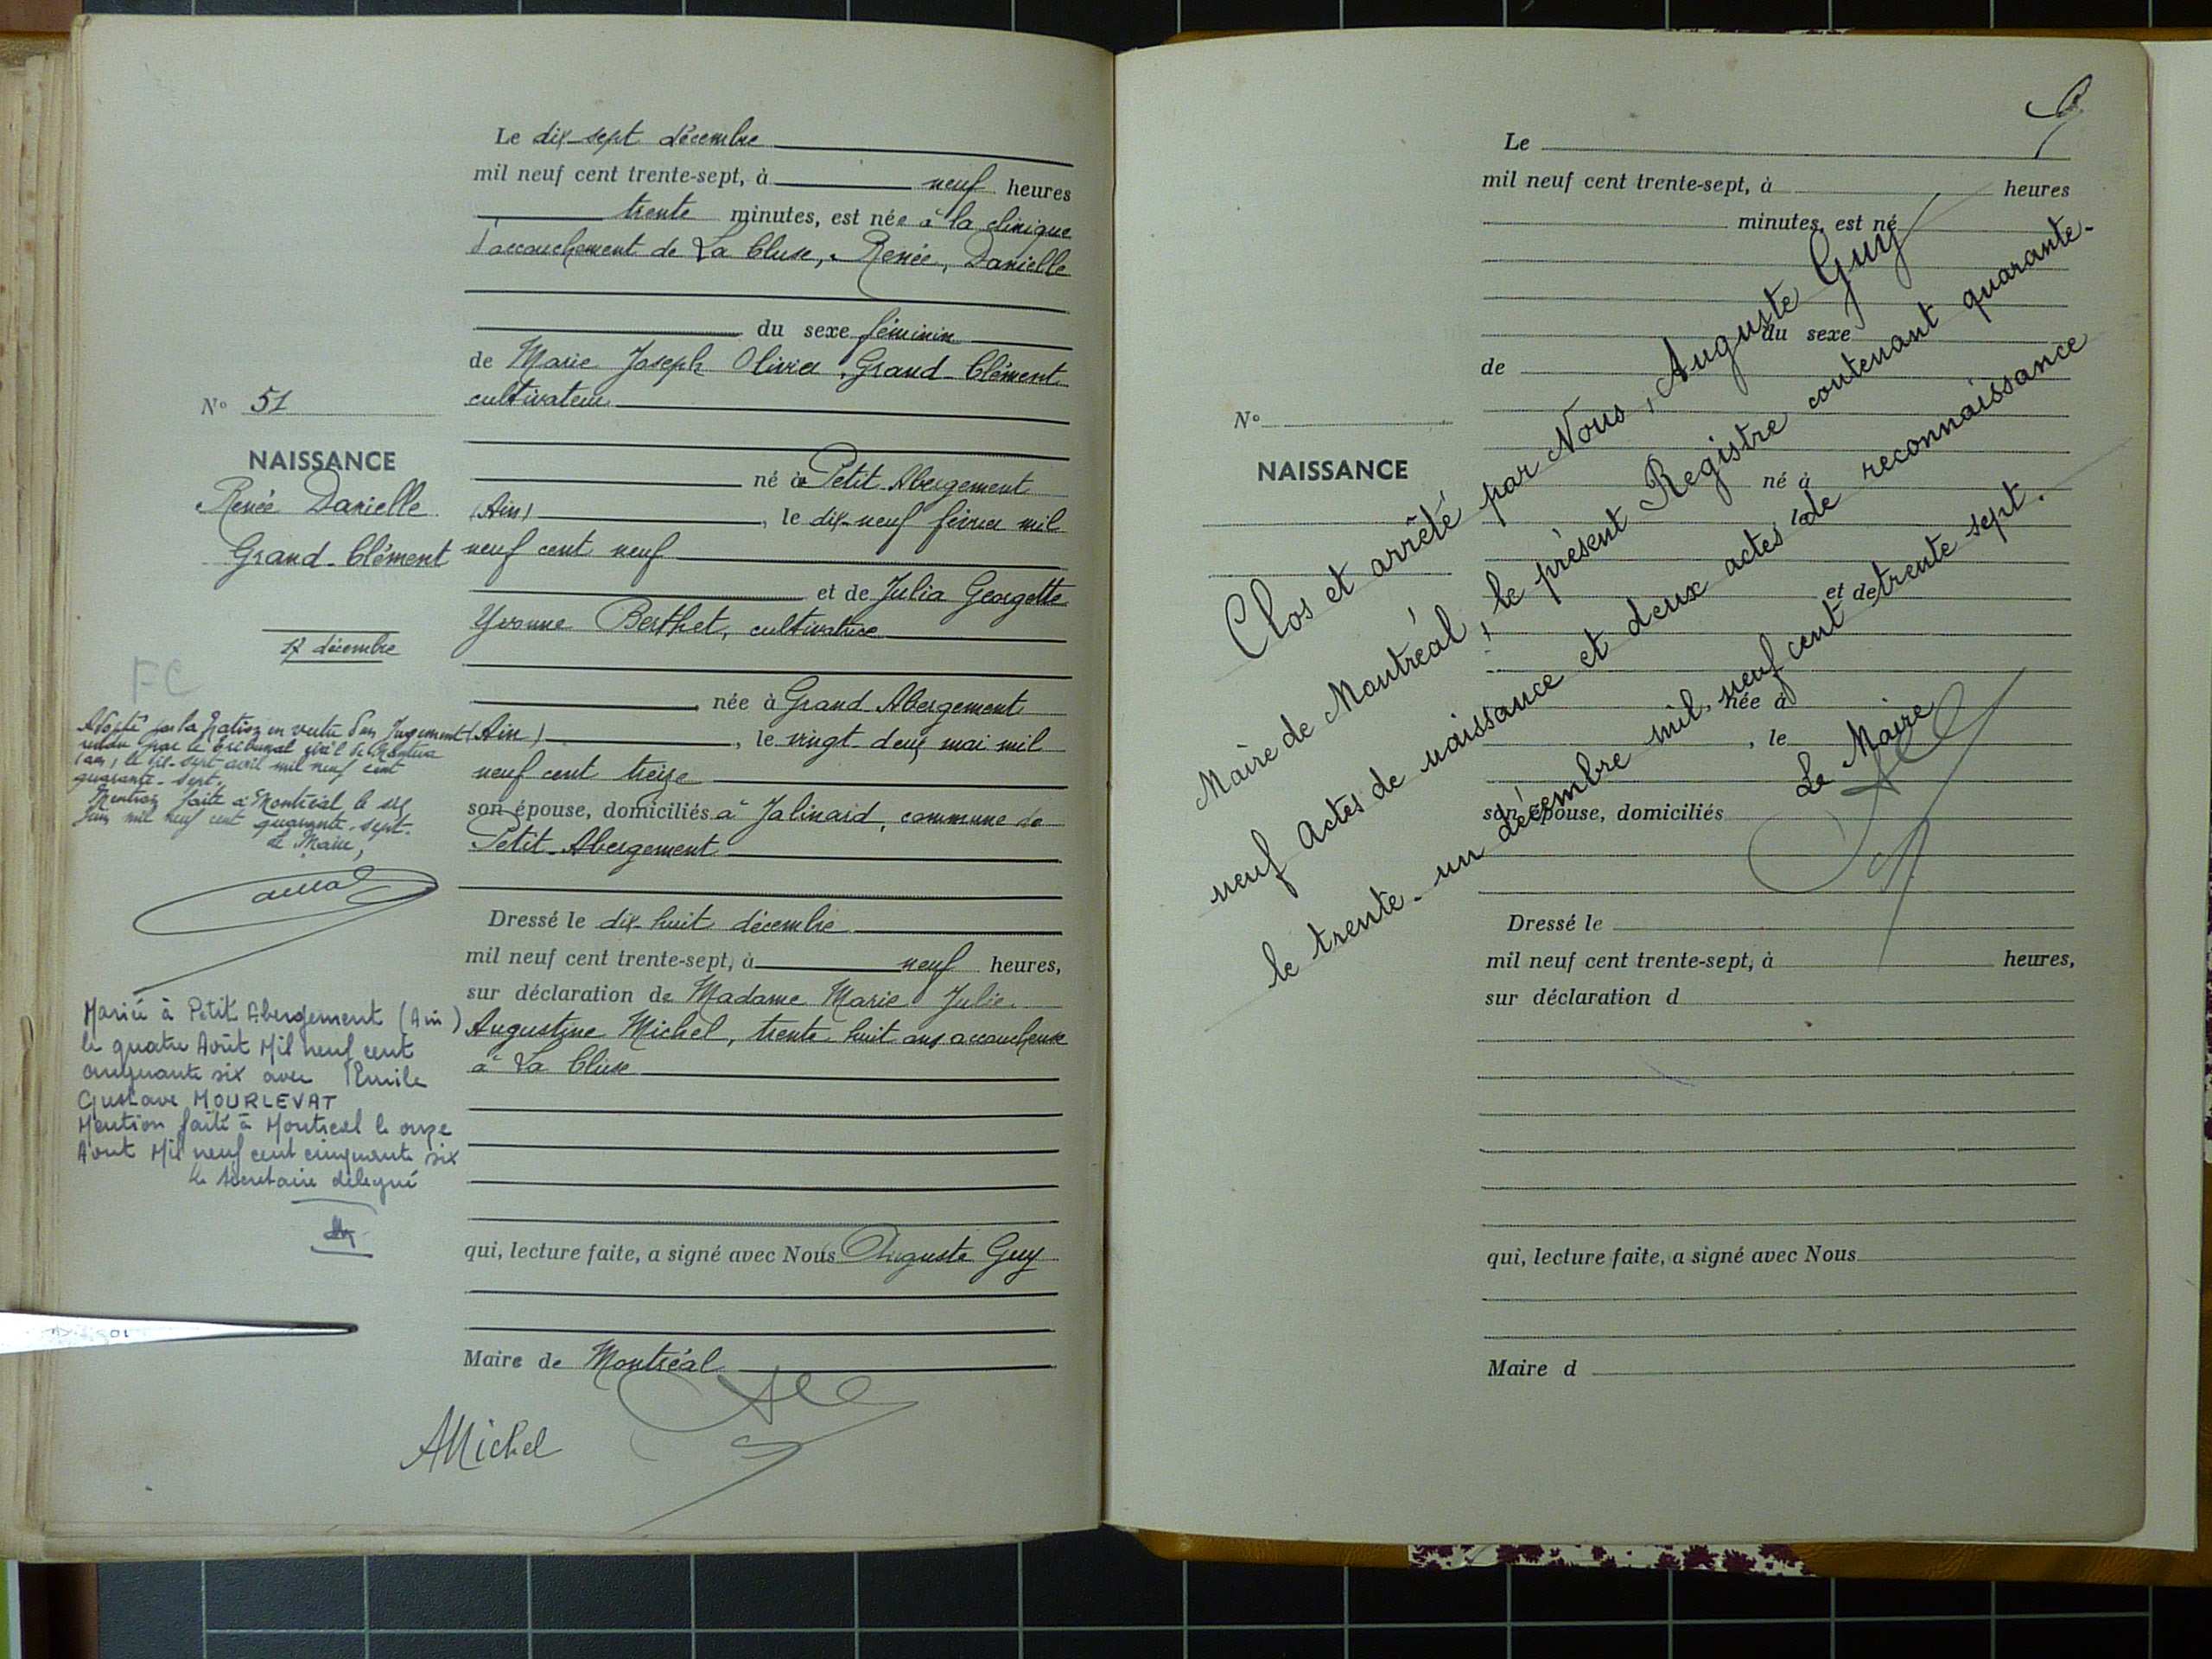 Le dix-sept décembre
mil neuf cent trente-sept, à neuf heures
trente minutes, est née à la clinique
d'accouchement de La Cluse, Renée, Danielle
du sexe féminin
de Marie Joseph Olivier Grand-Clément
cultivateur
né à Petit Abergement
(Ain), le dix-neuf février mil
neuf cent neuf
et de Julia Georgette
Yvonne Berthet, cultivatrice
née à Grand-Abergement
(Ain), le vingt-deux mai mil
neuf cent treize
son épouse, domiciliés à Jalinard, commune de
Petit-Abergement
Dressé le dix-huit décembre
mil neuf cent trente-sept, à neuf heures,
sur déclaration de Madame Marie Julie
Augustine Michel, trente-huit ans accoucheuse
à La Cluse
qui, lecture faite, a signé avec Nous Auguste Guy
Maire de Montréal
AMichel
N° 51
NAISSANCE
Renée Danielle
Grand-Clément
17 décembre
FC
Adopté par la Nation en vertu d'un Jugement
rendu par le tribunal civil de Nantua
(Ain), le dix-sept avril mil neuf cent
quarante-sept.
Mention faite à Montréal le six
Juin mil neuf cent quarante-sept.
Le Maire,
Mariée à Petit Abergement (Ain)
le quatre Août Mil neuf cent
cinquante six avec Emile
Gustave MOURLEVAT
Mention faite à Montréal le onze
Août Mil neuf cent cinquante six
le secrétaire délégué
Le
mil neuf cent trente-sept, à heures
minutes, est né
du sexe
de
N°
NAISSANCE
né à
, le
et de
née à
, le
son épouse, domiciliés
Dressé le
mil neuf cent trente-sept, à heures,
sur déclaration d
qui, lecture faite, a signé avec Nous
Maire d
Clos et arrêté par Nous, Auguste Guy
Maire de Montréal, le présent Registre contenant quarante-
neuf actes de naissance et deux actes de reconnaissance
le trente-un décembre mil neuf cent trente sept.
Le Maire